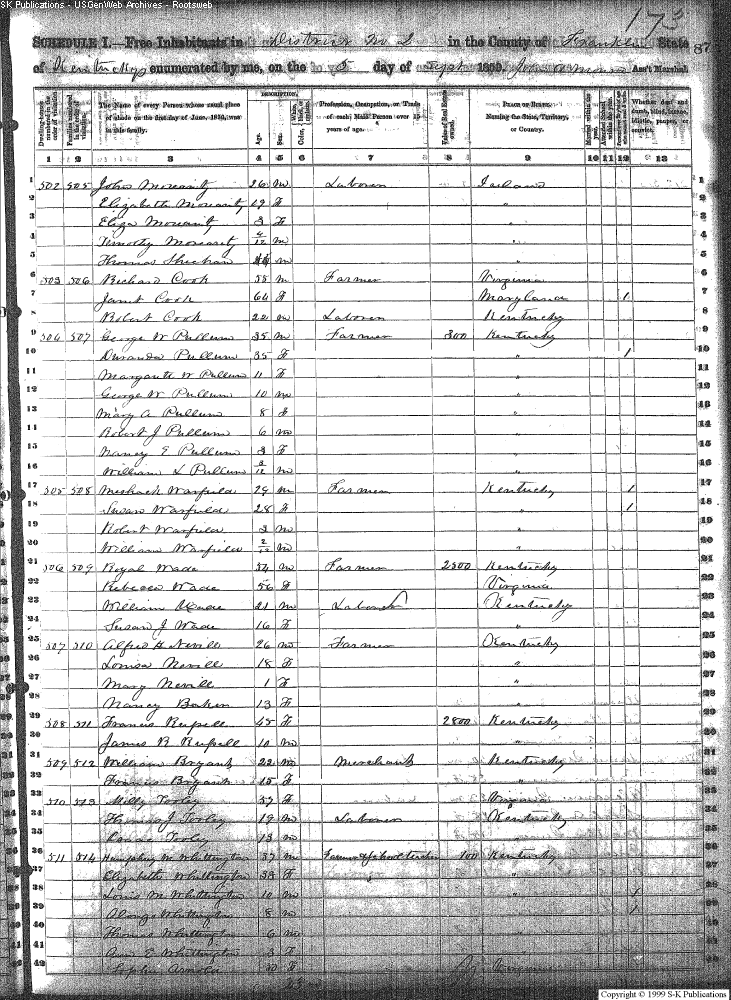 SK Publications - USGenWeb Archives - Rootsweb
173
87
SCHEDULE I.—Free Inhabitants in District No 2 in the County of Franklin State
of Kentucky enumerated by me, on the 5 day of Sept 1850. Ass't Marshal.
DESCRIPTION.
Dwelling-houses numbered in the order of visitation.
Families numbered in the order of visitation.
The Name of every Person whose usual place of abode on the first day of June, 1850, was in this family.
Age.
Sex.
Profession, Occupation, or Trade of each Male Person over 15 years of age.
Value of Real Estate owned.
PLACE OF BIRTH, Naming the State, Territory, or Country.
Married within the year.
Whether deaf and dumb, blind, insane, idiotic, pauper, or convict.
1 2 3 4 5 6 7 8 9 10 11 12 13
1 502 505 John Moriarity 26 M Laborer Ireland 1
2 Elizabeth Moriarity 19 F " 2
3 Eliza Moriarity 3 F " 3
4 Timothy Moriarity 4/12 M " 4
5 Thomas Sheehan M " 5
6 503 506 Richard Cook 58 M Farmer Virginia 6
7 Janet Cook 64 F Maryland 1 7
8 Robert Cook 22 M Laborer Kentucky 8
9 504 507 George W Pullum 35 M Farmer 300 Kentucky 9
10 Pullum 35 F " 1 10
11 Margarette W Pullum 11 F " 11
12 George W Pullum 10 M " 12
13 Mary A Pullum 8 F " 13
14 Robert J Pullum 6 M " 14
15 Nancy E Pullum 3 F " 15
16 William L Pullum M " 16
17 505 508 Meshack Warfield 29 M Farmer Kentucky 1 17
18 Susan Warfield 28 F " 1 18
19 Robert Warfield 3 M " 19
20 William Warfield 2/12 M " 20
21 506 509 Royal Wade 54 M Farmer 2500 Kentucky 21
22 Rebecca Wade 56 F Virginia 22
23 William Wade 21 M Laborer Kentucky 23
24 Susan J Wade 16 F 24
25 507 510 Alfred H Nevill 26 M Farmer Kentucky 25
26 Louisa Nevill 18 F " 26
27 Mary Nevill 1 F " 27
28 Nancy Baker 13 F " 28
29 508 511 Francis Russell 45 F 2800 Kentucky 29
30 James R Russell 10 M " 30
31 509 512 William Bryant 22 M Merchant Kentucky 31
32 Francis Bryant 15 F " 32
33 510 513 Milly Tooley 57 F Virginia 33
34 Thomas J Tooley 19 M Laborer Kentucky 34
35 Tooley 13 M " 35
36 511 514 Humphrey M Whittington 37 M Farmer & School teacher 100 Kentucky 36
37 Elizabeth Whittington 33 F " 37
38 Louis M Whittington 10 M " 1 38
39 Alonzo Whittington 8 M " 1 39
40 Thomas Whittington 6 M " 40
41 Ann E Whittington 3 F " 41
42 Sophia Arnold F 42
Copyright © 1999 S-K Publications